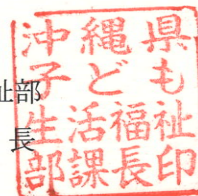 祉部
長
沖縄県
子ども
生活福祉
部課長印